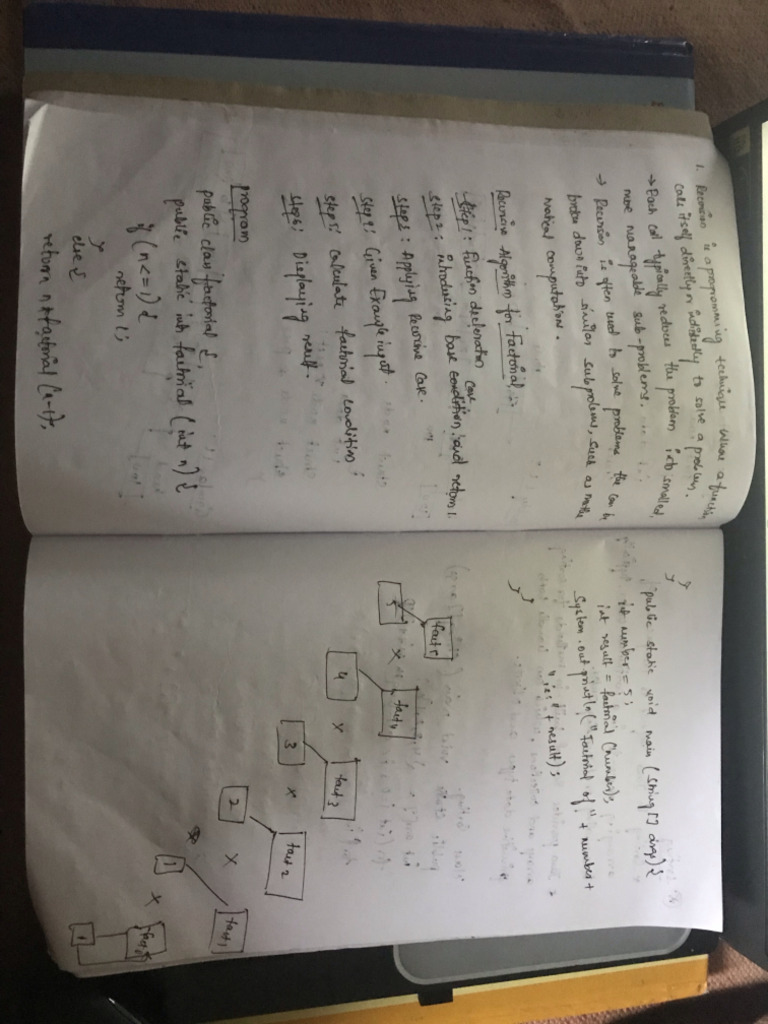 1. Recursion is a programming technique where a function
call itself directly or indirectly to solve a problem.
→ Each call typically reduces the problem into smalled,
more manageable sub-problems.
→ Recursion is often used to solve problems the can be
broken down into similar subproblems, such as mathe
matical computation.
Recursive Algorithm for Factorial :-
Step 1: Function declaration
Step 2: introducing base condition, and return 1.
case
Step 3: Applying Recursive case.
Step 4: Given Example input.
Step 5: Calculate factorial condition;
Step 6: Displaying result.
Program
public class factorial {
public static int factorial (int n) {
if (n <= 1) {
return 1;
}
else {
return n * factorial (n-1);
}
}
public static void main (String [] args) {
int number = 5;
int result = factorial (number);
System.out.println("Factorial of " + number +
" is: " + result);
}
}
5 fact5
x
4 fact4
x
3 fact3
x
2 fact2
x
1 fact1
x
1 fact0